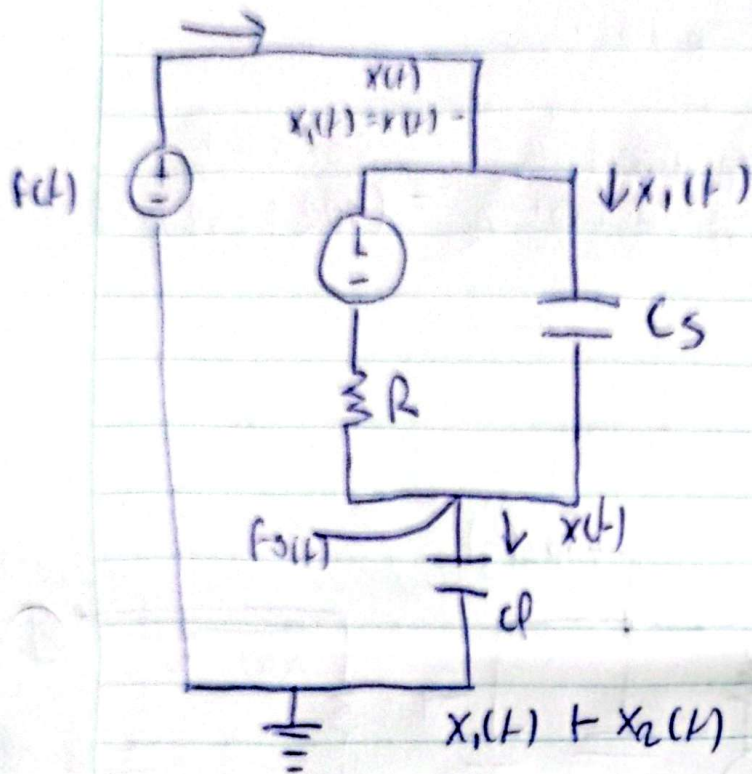 x(t)
x₁(t) = x(t) -
F(t)
+
-
↓ x₁(t)
+
-
Cs
R
Fs(t)
↓ x(t)
Cp
x₁(t) + x₂(t)